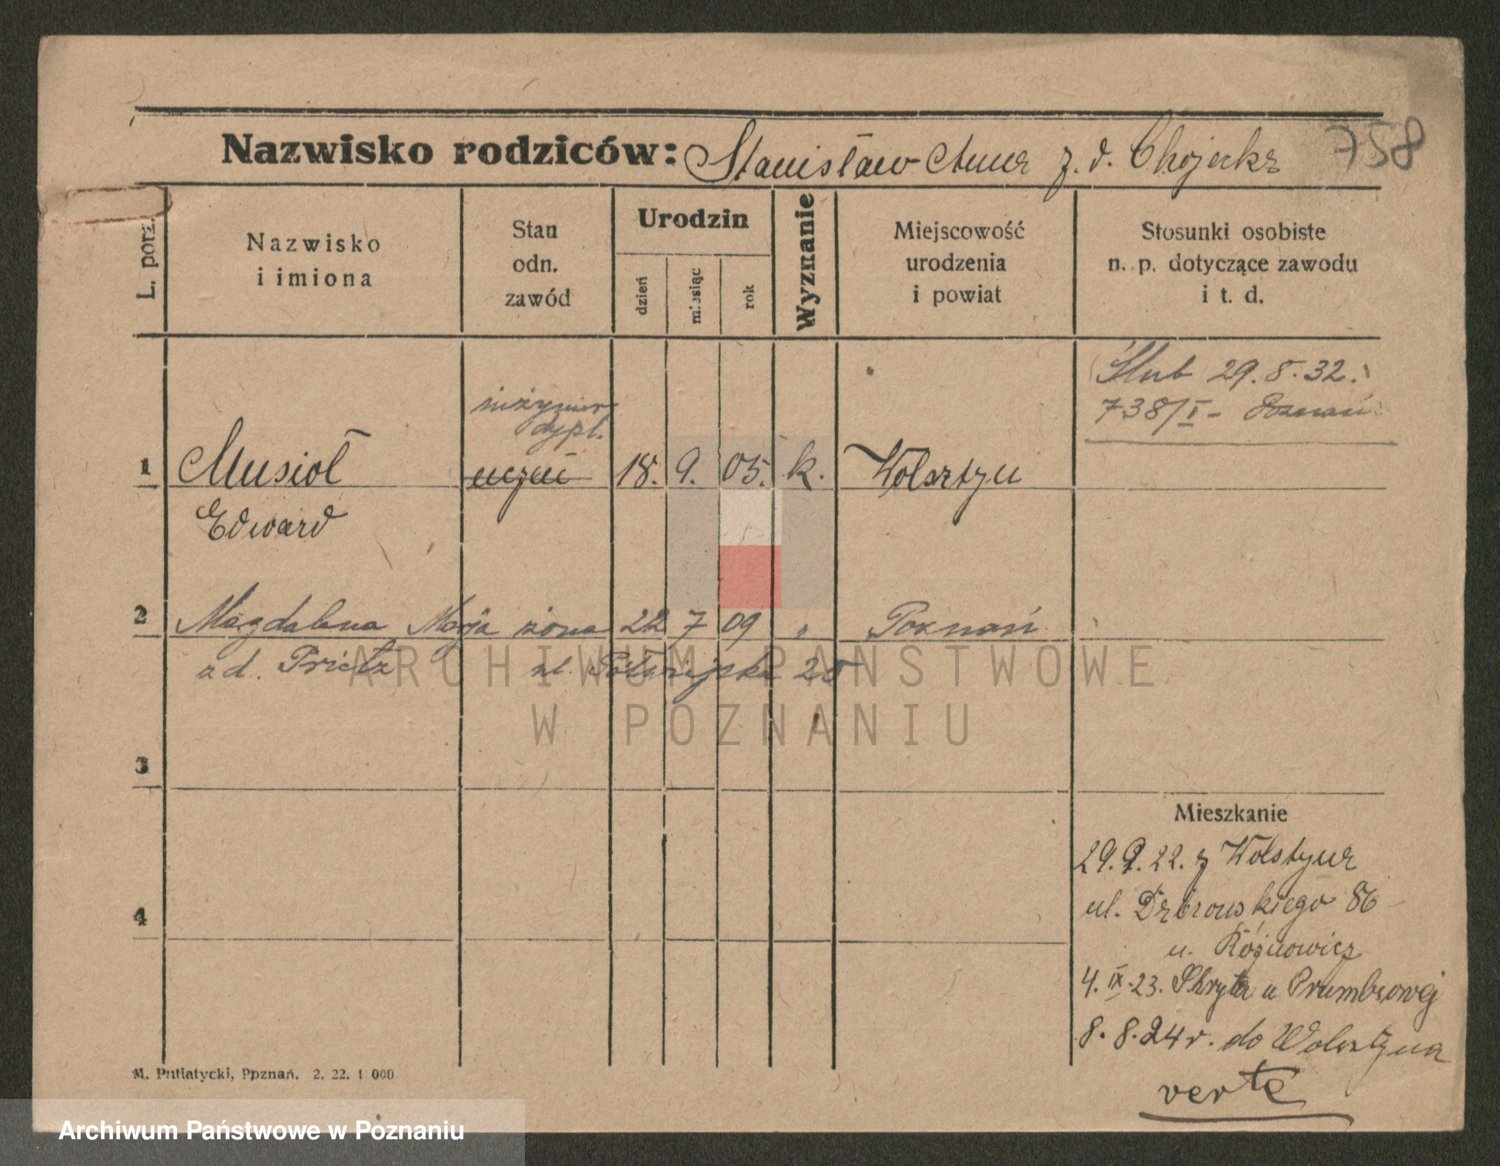 758
Nazwisko rodziców: Stanisław Anna z. d. Chojecka
L. porz.
Nazwisko
i imiona
Stan
odn.
zawód
Urodzin
dzień
miesiąc
rok
Wyznanie
Miejscowość
urodzenia
i powiat
Stosunki osobiste
n. p. dotyczące zawodu
i t. d.
Ślub 29.8.32.
738/I - Poznań
inżynier
dypl.
1 Musioł uczeń 18. 9. 05. k. Wolsztyn
Edward
2 Magdalena Marja żona 22 7 09 " Poznań
zd. Prietz ul. 25
ARCHIWUM PAŃSTWOWE
W POZNANIU
3
Mieszkanie
29.9.22. z Wolsztyna
ul. Dąbrowskiego 86
u. Różnowicz
4
4. IX. 23. Skryta u
8. 8. 24 r. do Wolsztyna
verte
M. Putiatycki, Poznań. 2. 22. 1 000
Archiwum Państwowe w Poznaniu